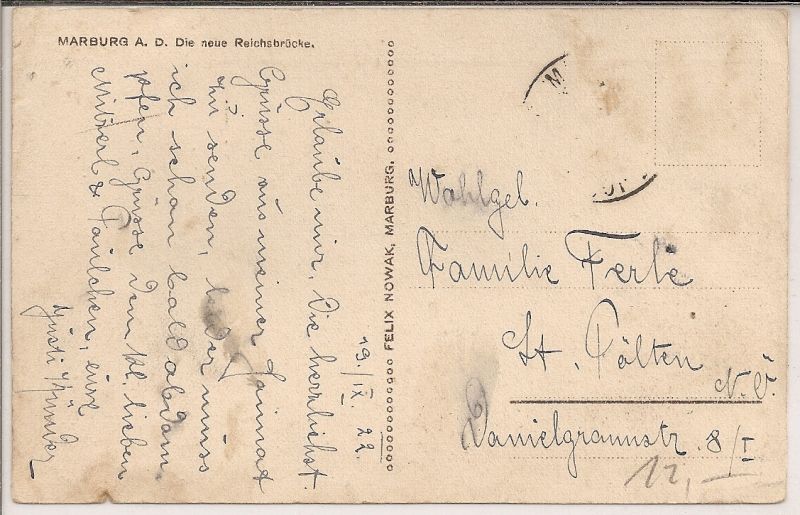 MARBURG A. D. Die neue Reichsbrücke.
19./IX. 22.
Erlaube mir, die herzlichst.
Grüsse aus meiner Heimat
zu senden, leider muss
ich schon bald abdam-
pfen. Grüsse dem kl. lieben
& Paulchen, eure
Gusti
FELIX NOWAK, MARBURG.
M
Wohlgeb.
Familie Ferle
St. Pölten
N. Ö.
Danielgrannstr. 8/I
12,—